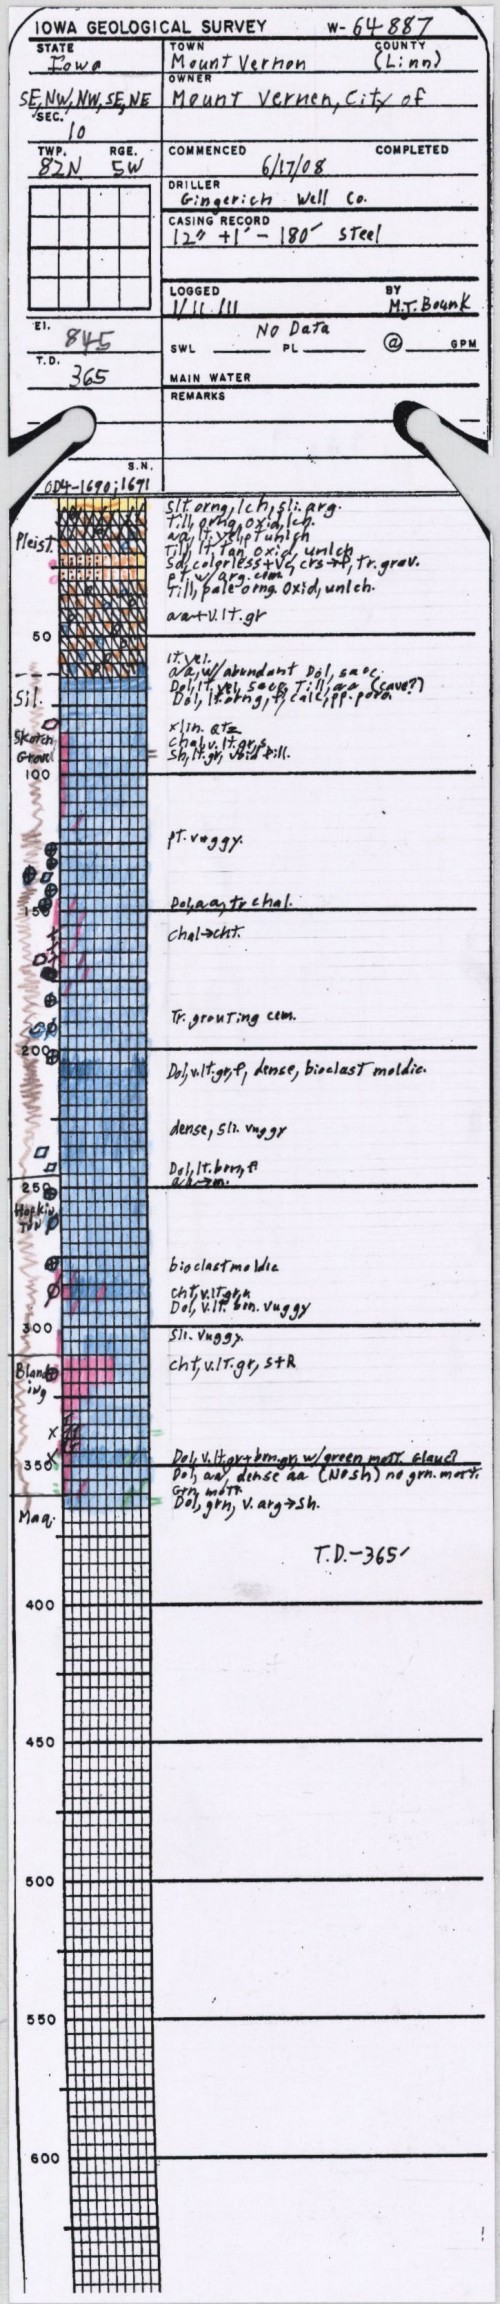 IOWA GEOLOGICAL SURVEY W-64887
STATE TOWN COUNTY
Iowa Mount Vernon (Linn)
OWNER
SE, NW, NW, SE, NE Mount Vernon, City of
SEC.
10
TWP. RGE. COMMENCED COMPLETED
82N 5W 6/17/08
DRILLER
Gingerich Well Co.
CASING RECORD
12" +1' - 180' steel
LOGGED BY
1/11/11 M.J. Bounk
El. No Data
845 SWL PL @ GPM
T.D.
365 MAIN WATER
REMARKS
S.N.
OD4-1690;1691
slt. orng, lch, sli. arg.
Till, orng, oxid, lch.
Pleist. Till, lt. tan oxid, unlch
Sd, colorless+vc, crs→f, tr. grav.
pt w/ arg. cem.
Till, pale orng. Oxid, unlch.
aa+v.lt.gr
50
lt. yel.
aa, w/ abundant Dol, sacc.
Dol, lt. yel, sacc, Till, aa (cave?)
Sil. Dol, lt. orng, f, calc, pp. poro.
xlin. qtz
Scotch Chal, v.lt.gr, s
Grove Sh, lt.gr, void fill.
100
pt. vuggy.
Dol, aa, tr chal.
150
Chal→cht.
Tr. grouting cem.
200
Dol, v.lt.gr, f, dense, bioclast moldic.
dense, sli. vuggy
Dol, lt. brn, f
aa→m.
250
Hopkin
ton
bioclast moldic
cht, v.lt.gr,
Dol, v.lt. brn. vuggy
300
sli. vuggy.
Bland cht, v.lt.gr, S+R
ing
Dol, v.lt.gr+brn.gr, w/green mott. Glauc?
350
Dol, aa, dense aa (No sh) no grn. mott.
Grn, mott
Dol, grn, v. arg→sh.
Maq.
T.D.-365'
400
450
500
550
600